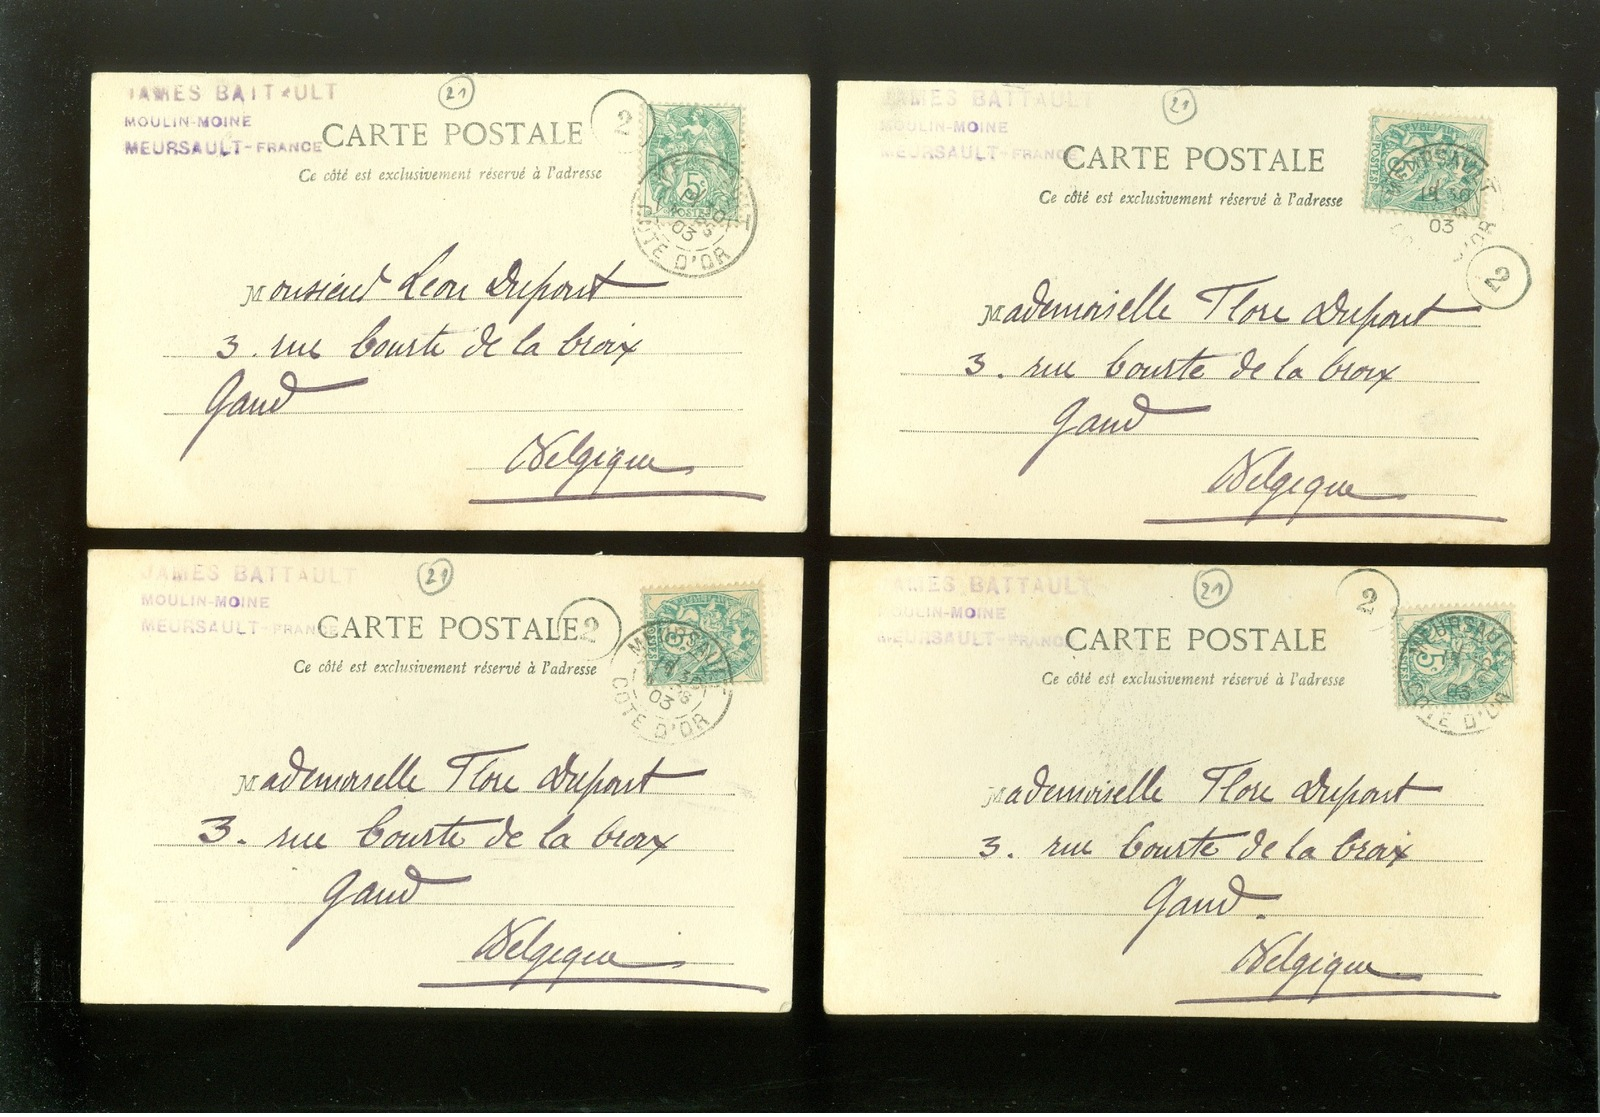 JAMES BATTAULT
MOULIN-MOINE
MEURSAULT-FRANCE
21
2
CARTE POSTALE
Ce côté est exclusivement réservé à l'adresse
5c
POSTES
03
COTE D'OR
Monsieur Leon Dupont
3. rue Courte de la Croix
Gand
Belgique
JAMES BATTAULT
MOULIN-MOINE
MEURSAULT-FRANCE
21
CARTE POSTALE
Ce côté est exclusivement réservé à l'adresse
POSTES
MEURSAULT
18 30
03
D'OR
2
Mademoiselle Flore Dupont
3. rue Courte de la Croix
Gand
Belgique
JAMES BATTAULT
MOULIN-MOINE
MEURSAULT-FRANCE
21
2
CARTE POSTALE
Ce côté est exclusivement réservé à l'adresse
MEURSAULT
03
COTE D'OR
Mademoiselle Flore Dupont
3. rue Courte de la Croix
Gand
Belgique
JAMES BATTAULT
MOULIN-MOINE
MEURSAULT-FRANCE
21
2
CARTE POSTALE
Ce côté est exclusivement réservé à l'adresse
MEURSAULT
5c
03
COTE D'OR
Mademoiselle Flore Dupont
3. rue Courte de la Croix
Gand.
Belgique